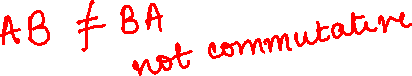 AB ≠ BA
not commutative